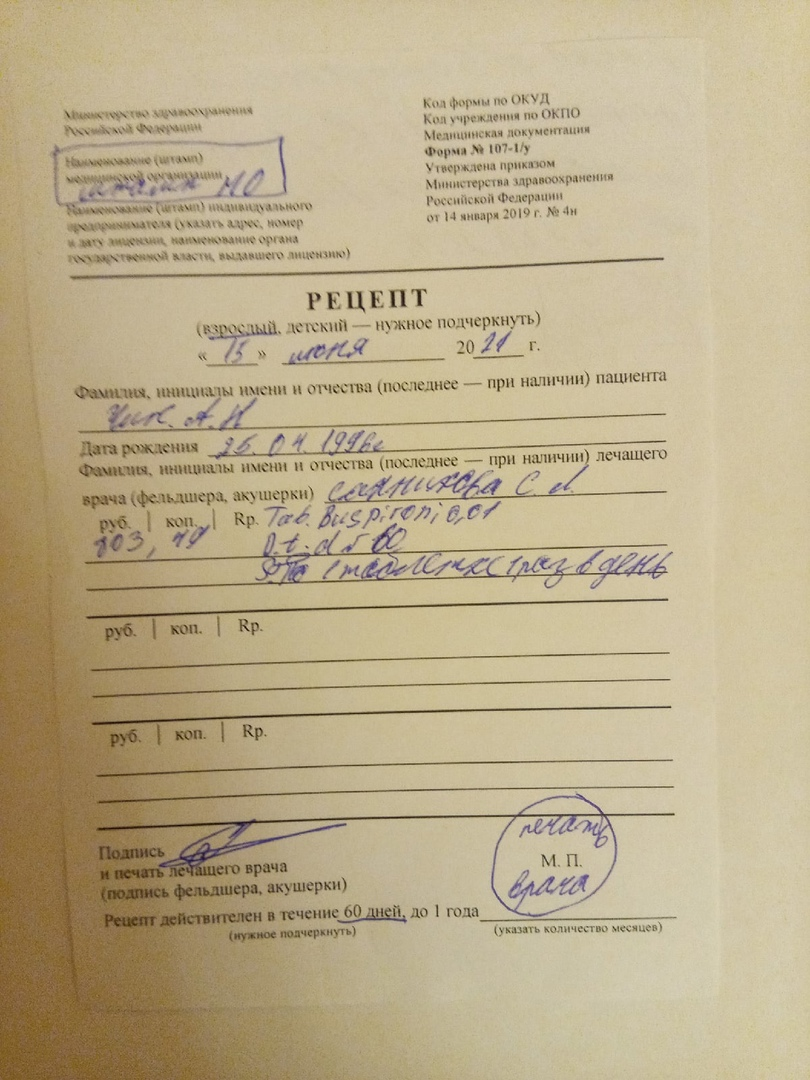 Министерство здравоохранения
Российской Федерации
Наименование (штамп)
медицинской организации
штамп МО
Наименование (штамп) индивидуального
предпринимателя (указать адрес, номер
и дату лицензии, наименование органа
государственной власти, выдавшего лицензию)
Код формы по ОКУД
Код учреждения по ОКПО
Медицинская документация
Форма № 107-1/у
Утверждена приказом
Министерства здравоохранения
Российской Федерации
от 14 января 2019 г. № 4н
РЕЦЕПТ
(взрослый, детский — нужное подчеркнуть)
« 15 » июня 20 21 г.
Фамилия, инициалы имени и отчества (последнее — при наличии) пациента
А. И
Дата рождения 25. 04. 1996г
Фамилия, инициалы имени и отчества (последнее — при наличии) лечащего
врача (фельдшера, акушерки) Санникова С. А.
руб. | коп. | Rp. Tab. Buspironi 0,01
103, D.t.d N 60
S. По 1 таблетке 1 раз в день
руб. | коп. | Rp.
руб. | коп. | Rp.
Подпись
и печать лечащего врача
(подпись фельдшера, акушерки)
печать
М. П.
врача
Рецепт действителен в течение 60 дней, до 1 года
(нужное подчеркнуть) (указать количество месяцев)